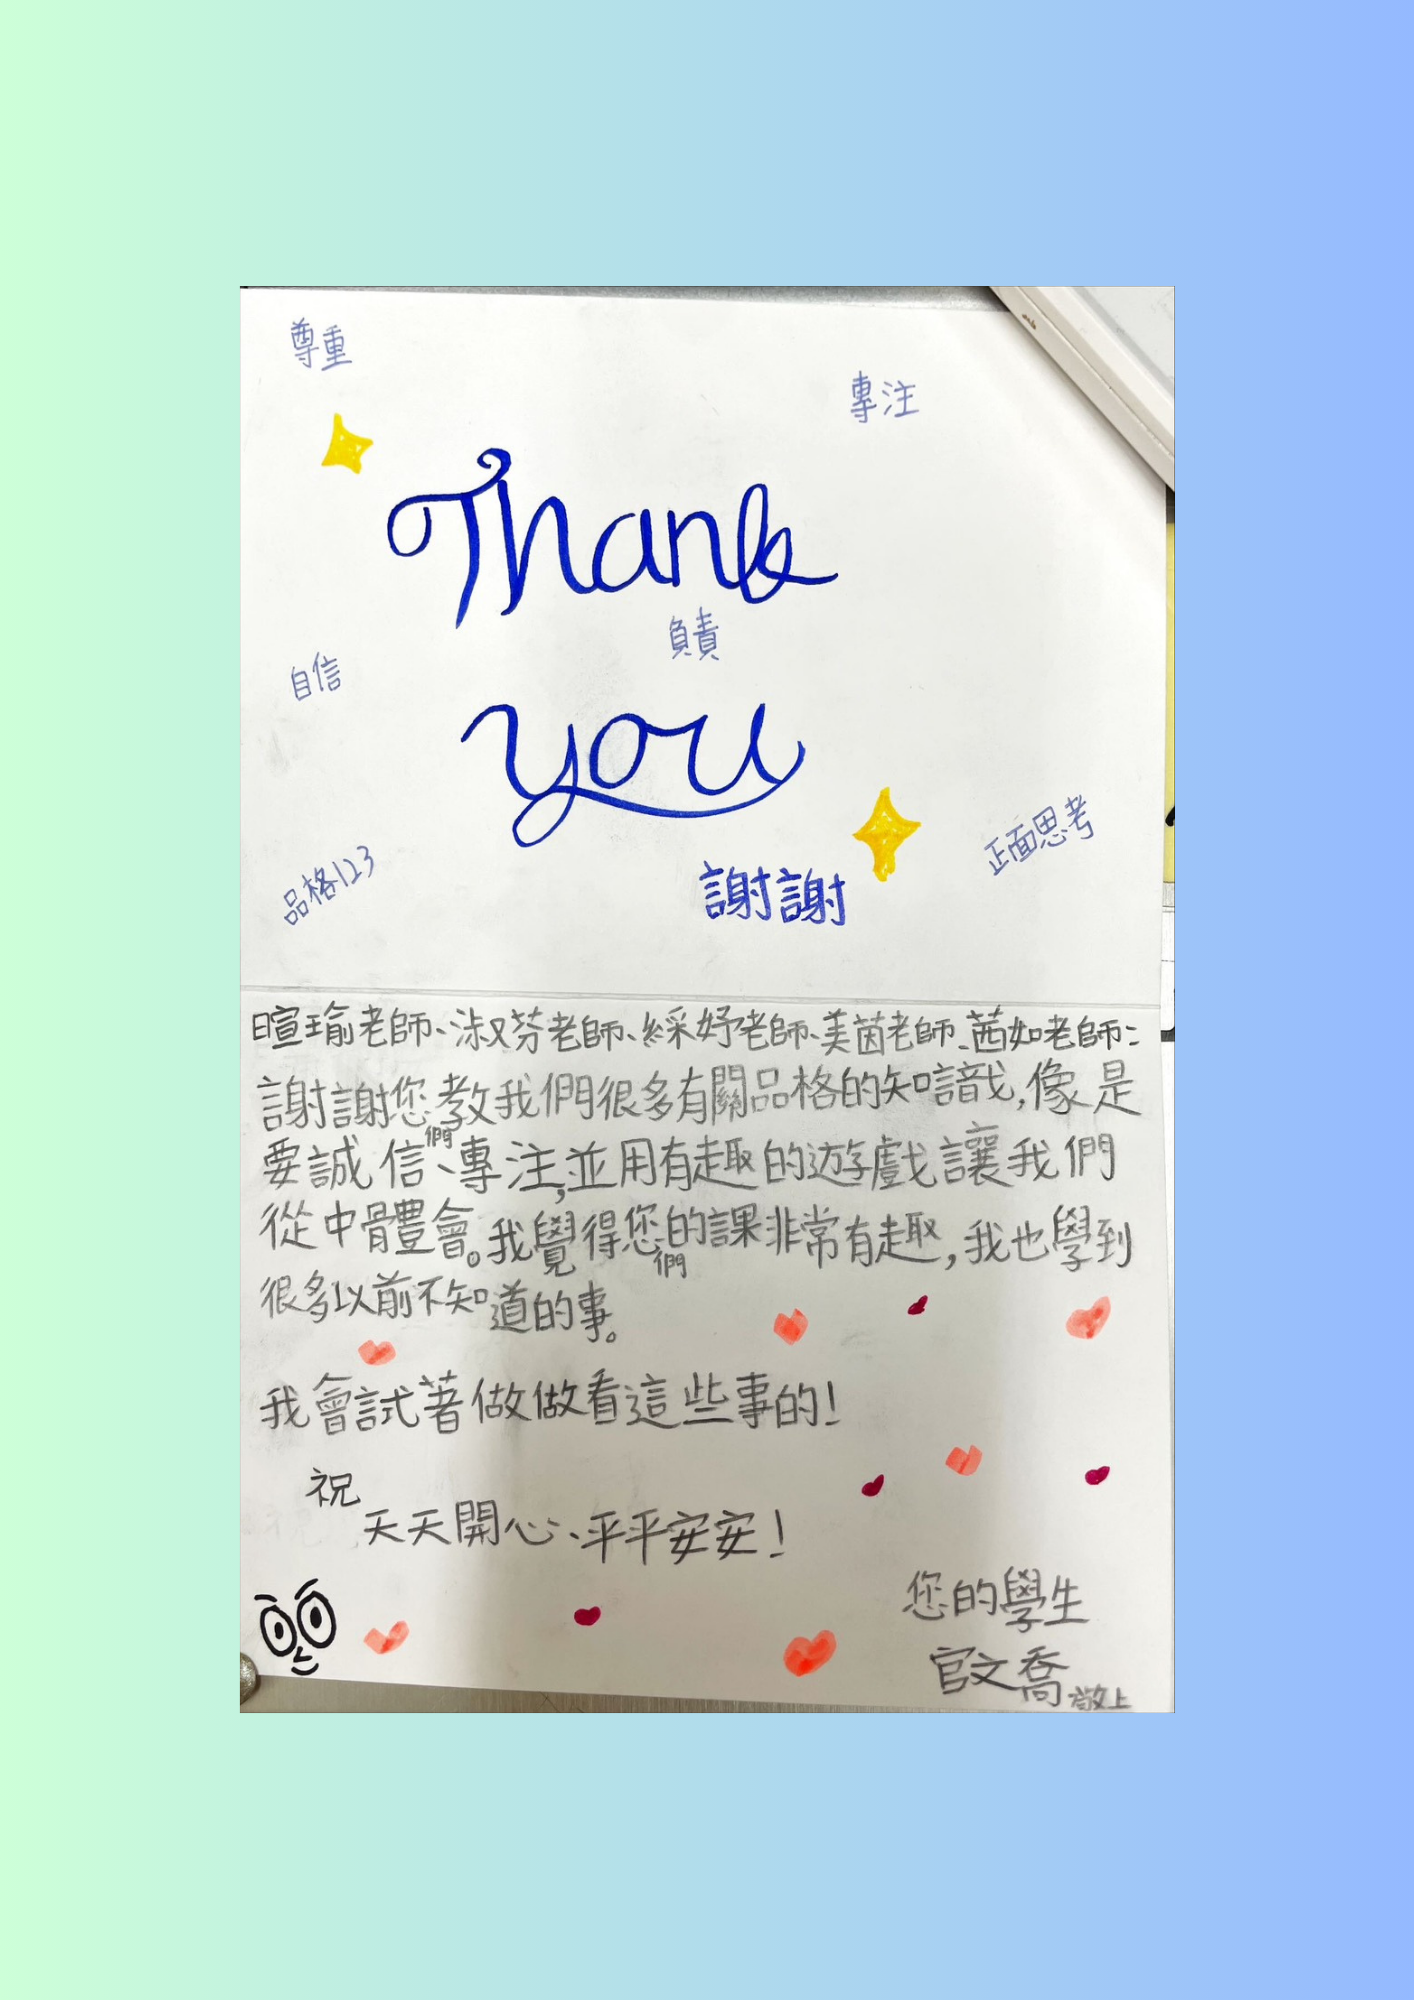 尊重
專注
Thank
負責
自信
you
正面思考
品格123
謝謝
暄瑜老師、淑芬老師、綵妤老師、美茵老師、茜如老師:
謝謝您們教我們很多有關品格的知識,像是
要誠信、專注,並用有趣的遊戲讓我們
從中體會。我覺得您們的課非常有趣,我也學到
很多以前不知道的事。
我會試著做做看這些事的!
祝
天天開心、平平安安!
您的學生
官文喬敬上